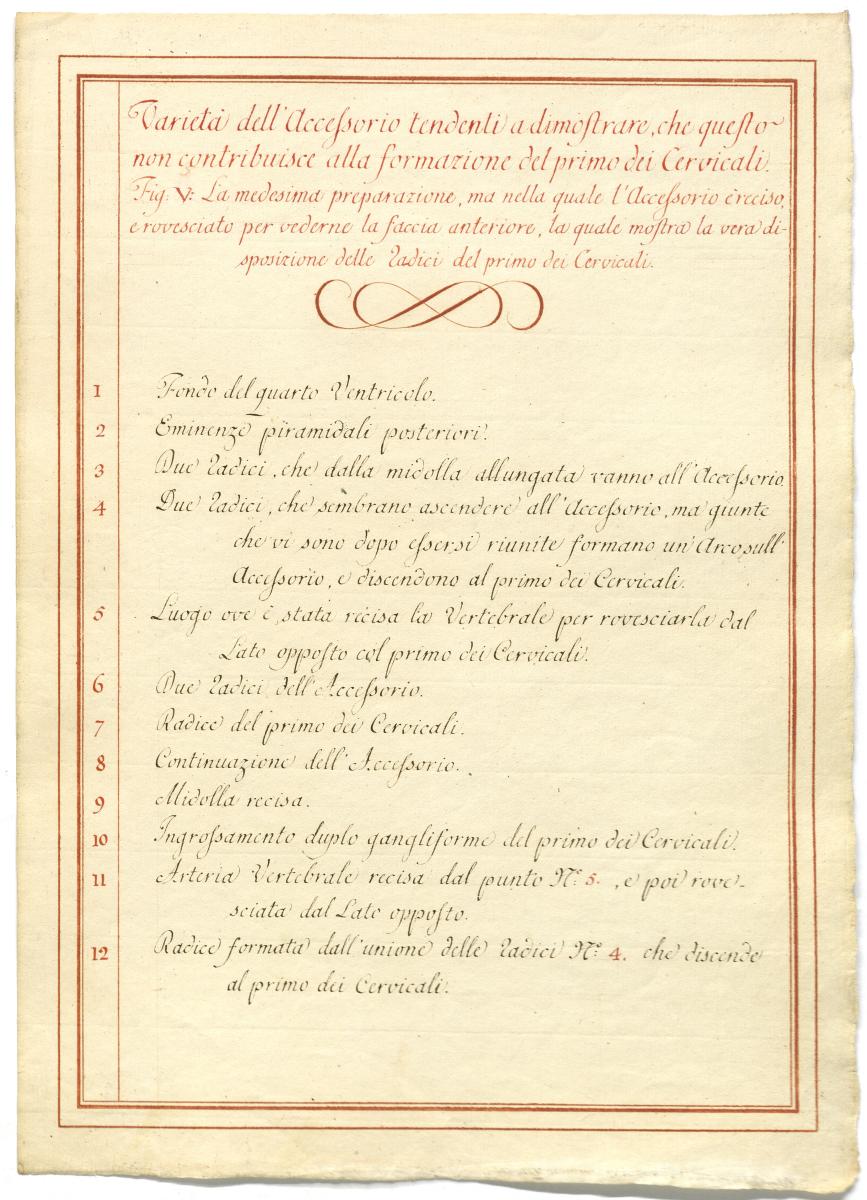 Varietà dell'Accessorio tendenti a dimostrare, che questo
non contribuisce alla formazione del primo dei Cervicali.
Fig. V: La medesima preparazione, ma nella quale l'Accessorio è reciso,
e rovesciato per vederne la faccia anteriore, la quale mostra la vera di-
sposizione delle Radici del primo dei Cervicali.
1 Fondo del quarto Ventricolo.
2 Eminenze piramidali posteriori.
3 Due Radici, che dalla midolla allungata vanno all'Accessorio.
4 Due Radici, che sembrano ascendere all'Accessorio, ma giunte
che vi sono dopo essersi riunite formano un'Arco sull'
Accessorio, e discendono al primo dei Cervicali.
5 Luogo ove è stata recisa la Vertebrale per rovesciarla dal
Lato opposto col primo dei Cervicali.
6 Due Radici dell'Accessorio.
7 Radice del primo dei Cervicali.
8 Continuazione dell'Accessorio.
9 Midolla recisa.
10 Ingrossamento duplo gangliforme del primo dei Cervicali.
11 Arteria Vertebrale recisa dal punto N.º 5., e poi rove-
sciata dal Lato opposto.
12 Radice formata dall'unione delle Radici N.º 4. che discende
al primo dei Cervicali.